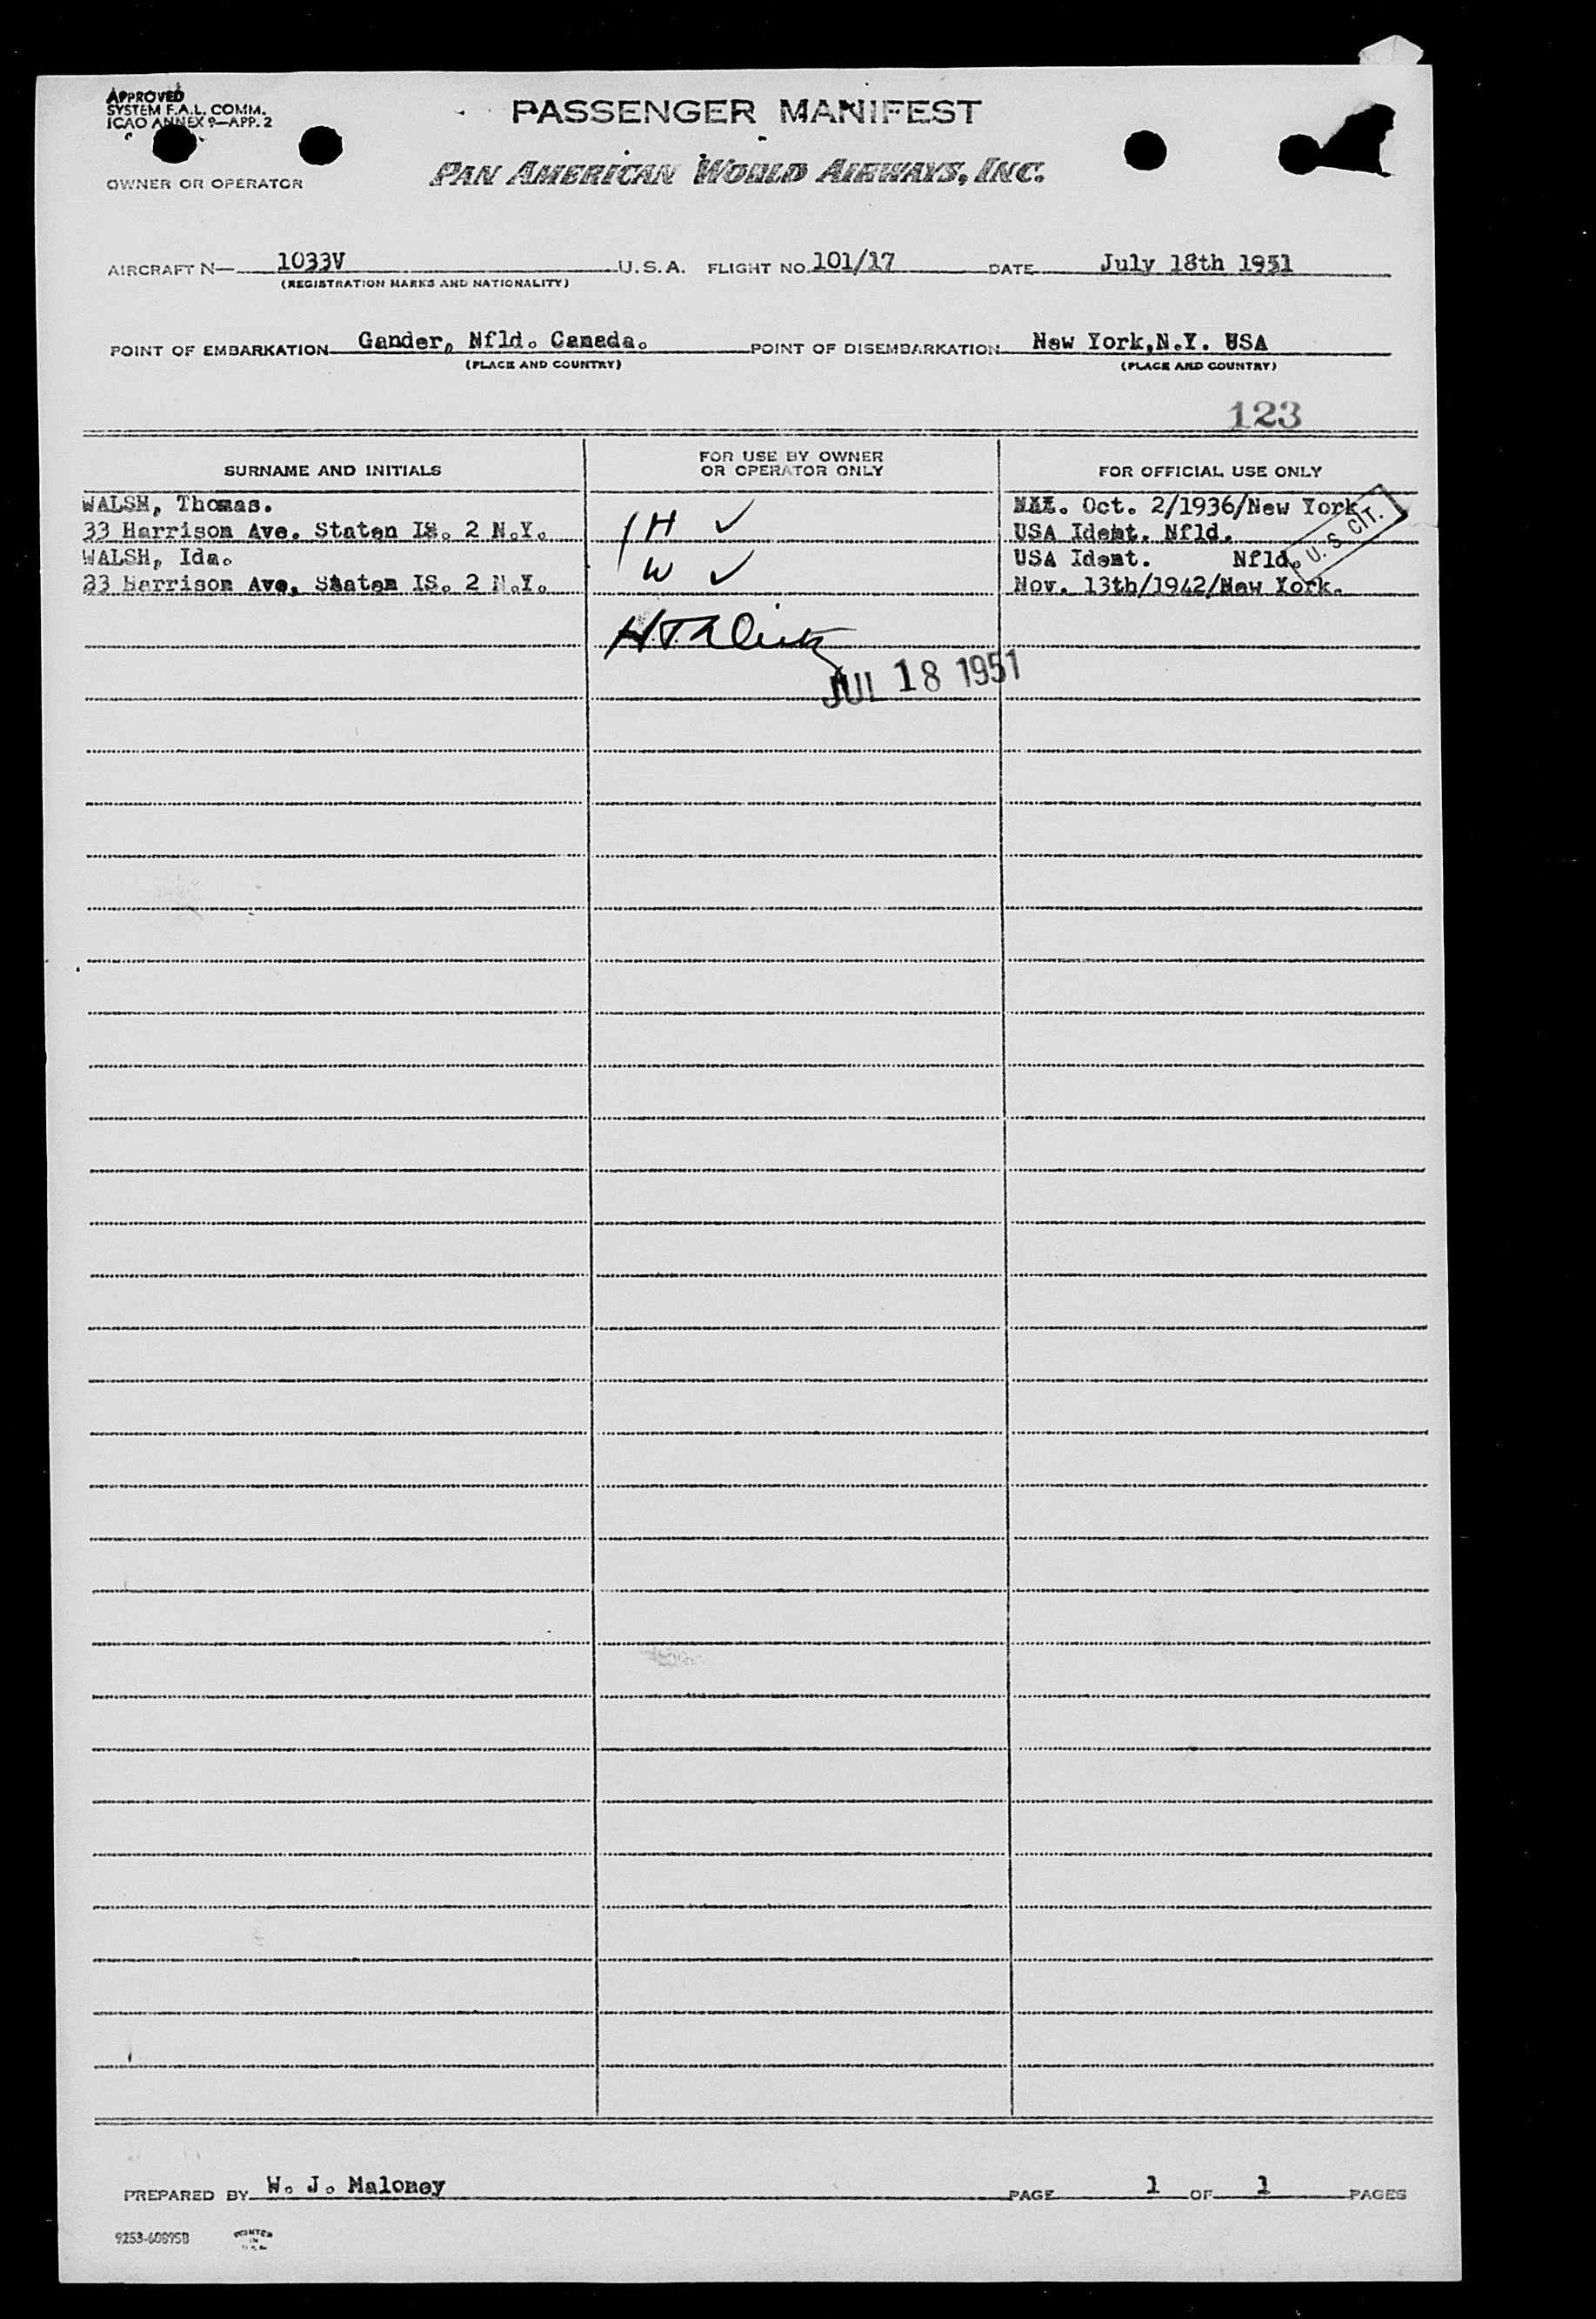 APPROVED
SYSTEM F.A.L. COMM.
ICAO ANNEX 9—APP. 2
PASSENGER MANIFEST
OWNER OR OPERATOR
PAN AMERICAN WORLD AIRWAYS, INC.
AIRCRAFT N— 1033V U.S.A. FLIGHT NO. 101/17 DATE July 18th 1951
(REGISTRATION MARKS AND NATIONALITY)
POINT OF EMBARKATION Gander, Nfld. Canada. POINT OF DISEMBARKATION New York,N.Y. USA
(PLACE AND COUNTRY) (PLACE AND COUNTRY)
123
SURNAME AND INITIALS FOR USE BY OWNER OR OPERATOR ONLY FOR OFFICIAL USE ONLY
WALSH, Thomas. NAT. Oct. 2/1936/New York
33 Harrison Ave. Staten IS. 2 N.Y. H ✓ USA Ident. Nfld. U.S. CIT.
WALSH, Ida. USA Ident. Nfld.
33 Harrison Ave, Staten IS. 2 N.Y. W ✓ Nov. 13th/1942/New York.
JUL 18 1951
PREPARED BY W. J. Maloney PAGE 1 OF 1 PAGES
9253-60895B PRINTED IN U.S.A.